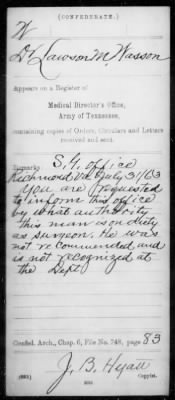 (CONFEDERATE.)
W
Dr Lawson M. Wasson
Appears on a Register of
Medical Director's Office,
Army of Tennessee,
containing copies of Orders, Circulars and Letters
received and sent.
Remarks S. G. Office
Richmond Va. July 31/63
You are requested
to inform this office
by what authority
this man is on duty
as surgeon. He was
not recommended and
is not recognized at
the Dept.
Confed. Arch., Chap. 6, File No. 748, page 83
J. B. Hyatt
Copyist.